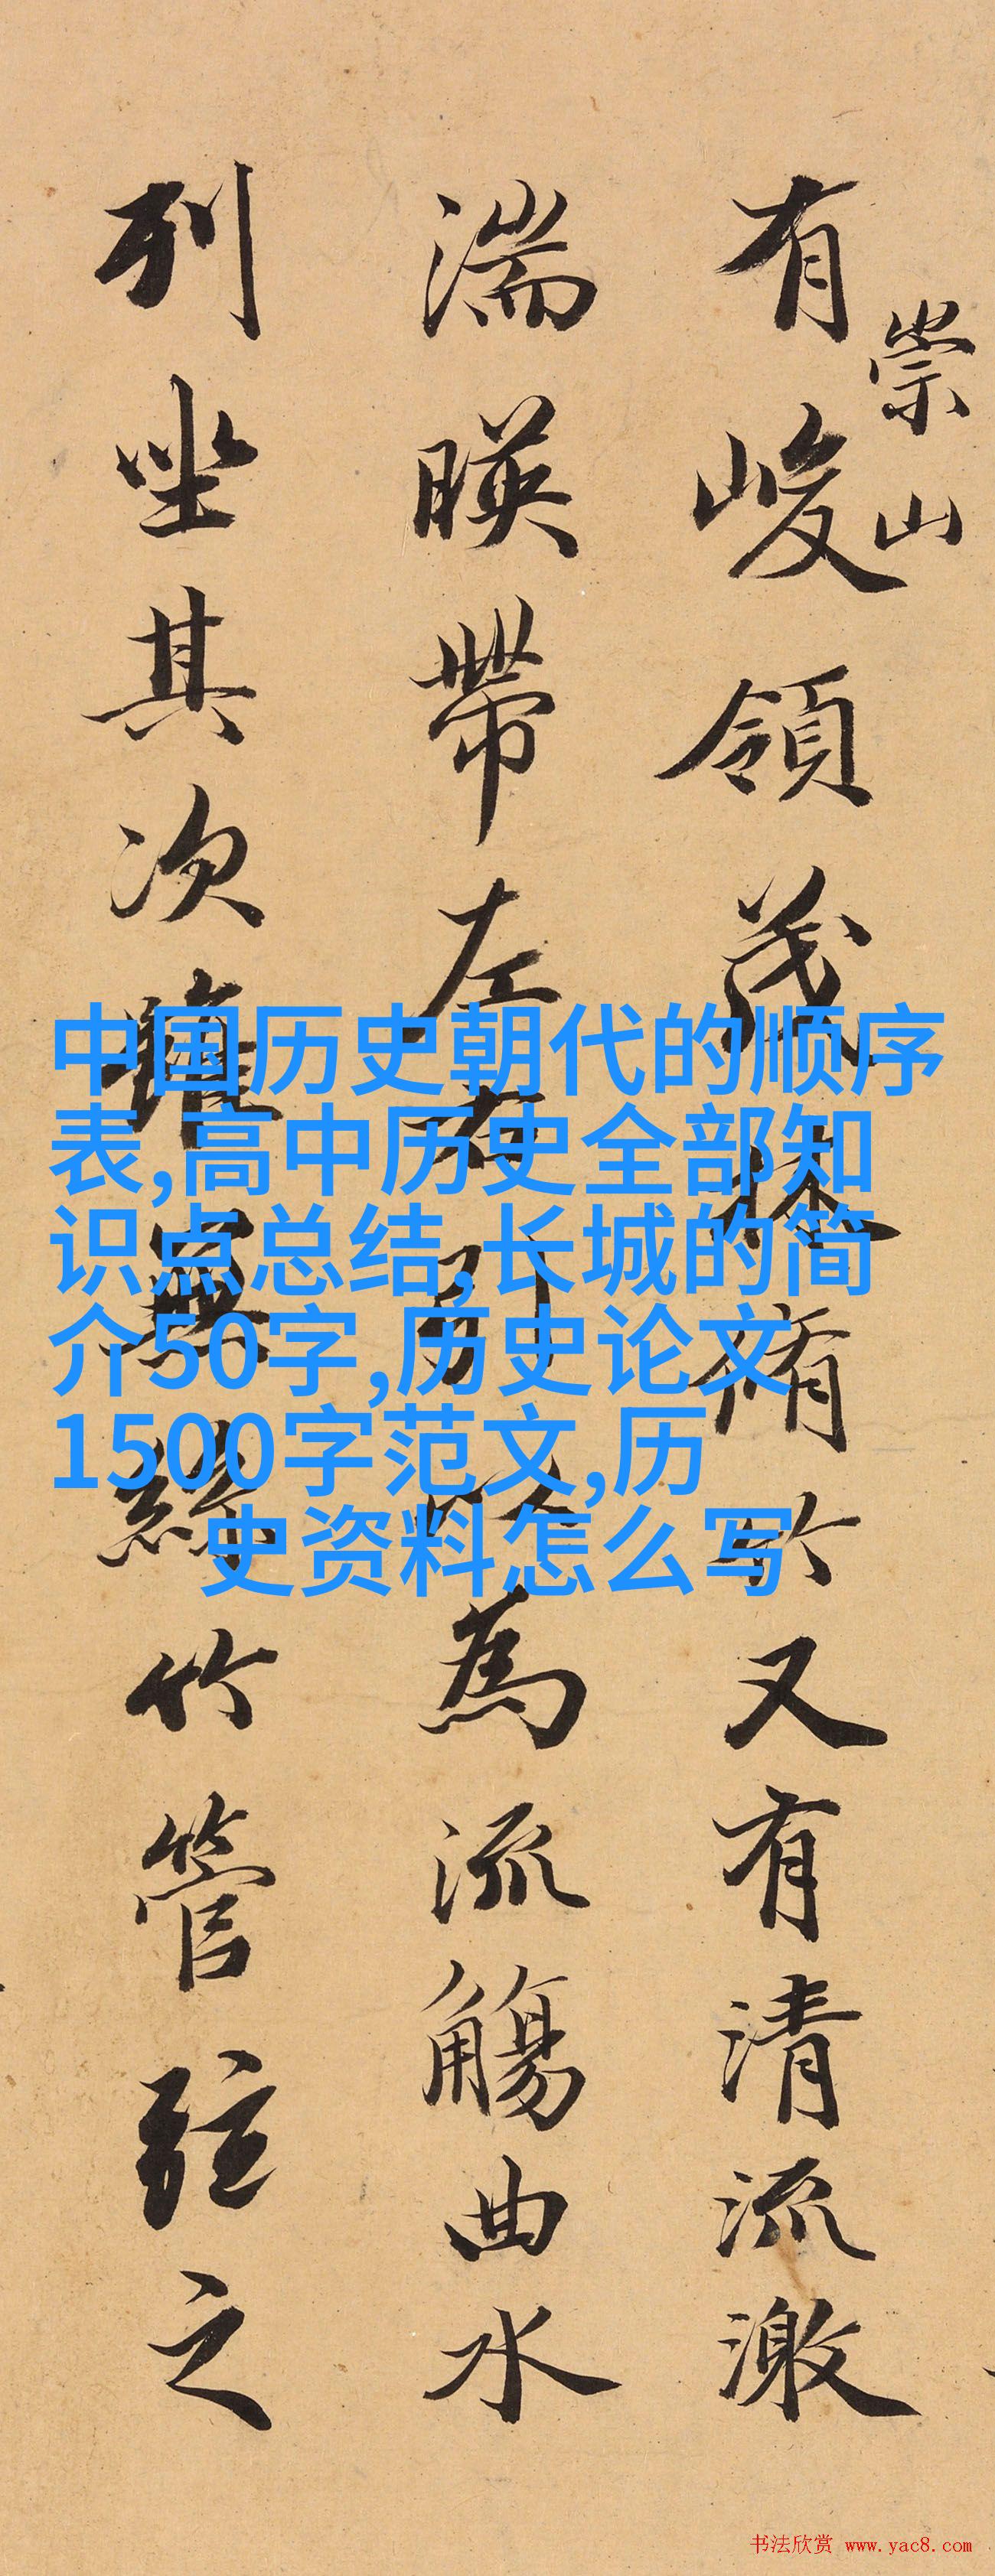 崇山
有峻領茂林脩竹又有清流激
湍暎帶左右引以為流觴曲水
列坐其次雖無絲竹管弦之
中国历史朝代的顺序
表,高中历史全部知
识点总结,长城的简
介50字,历史论文
1500字范文,历
史资料怎么写
书法欣赏 www.yac8.com